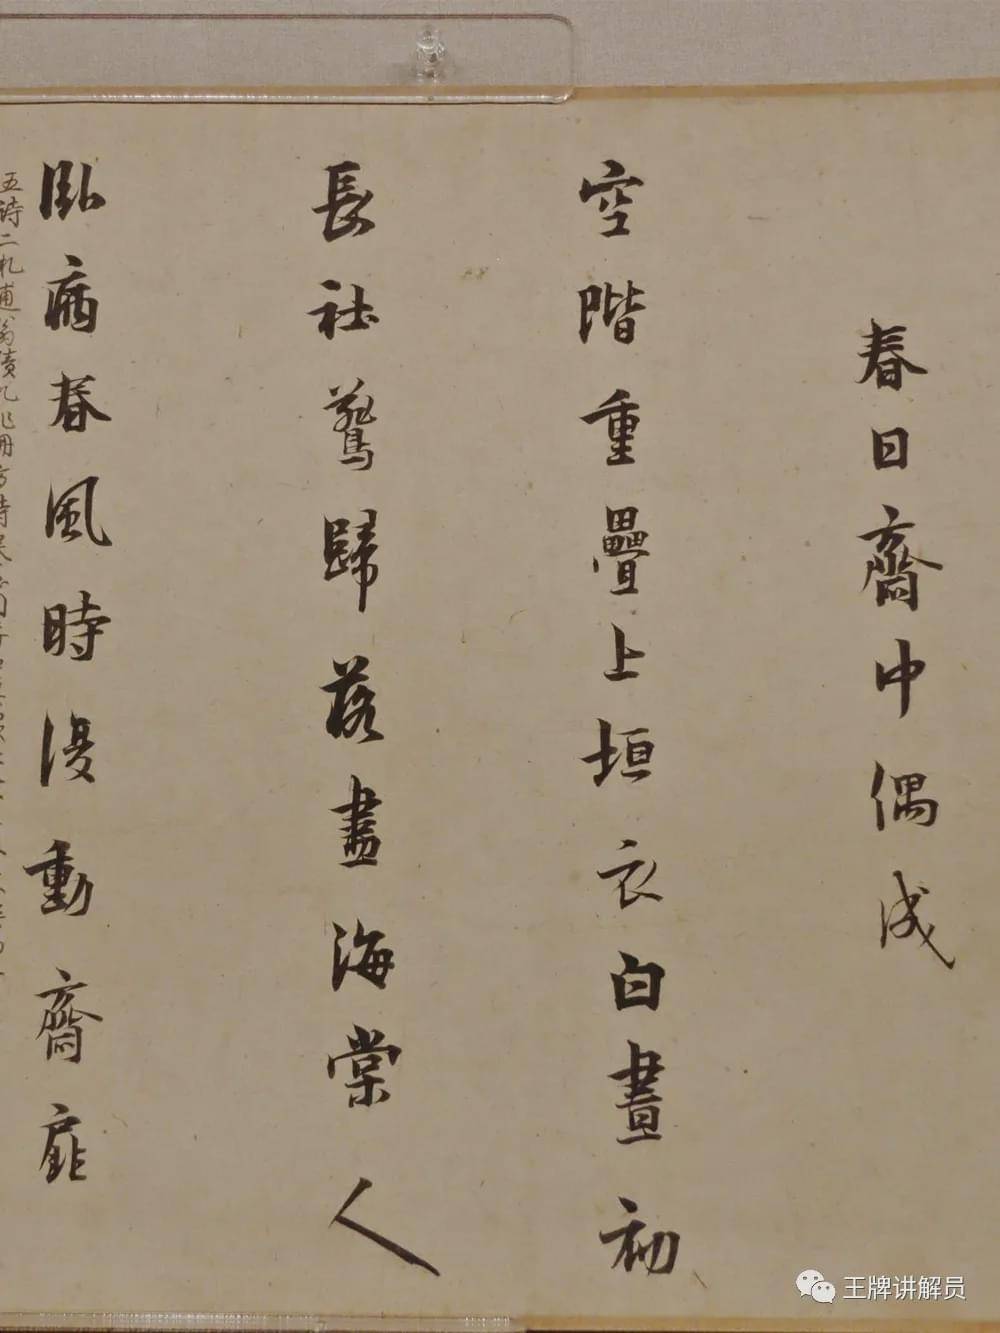 春日齋中偶成
空階重疊上垣衣白晝初
長社鷰歸落盡海棠人
臥病春風時復動齋扉
五詩二札
王牌讲解员